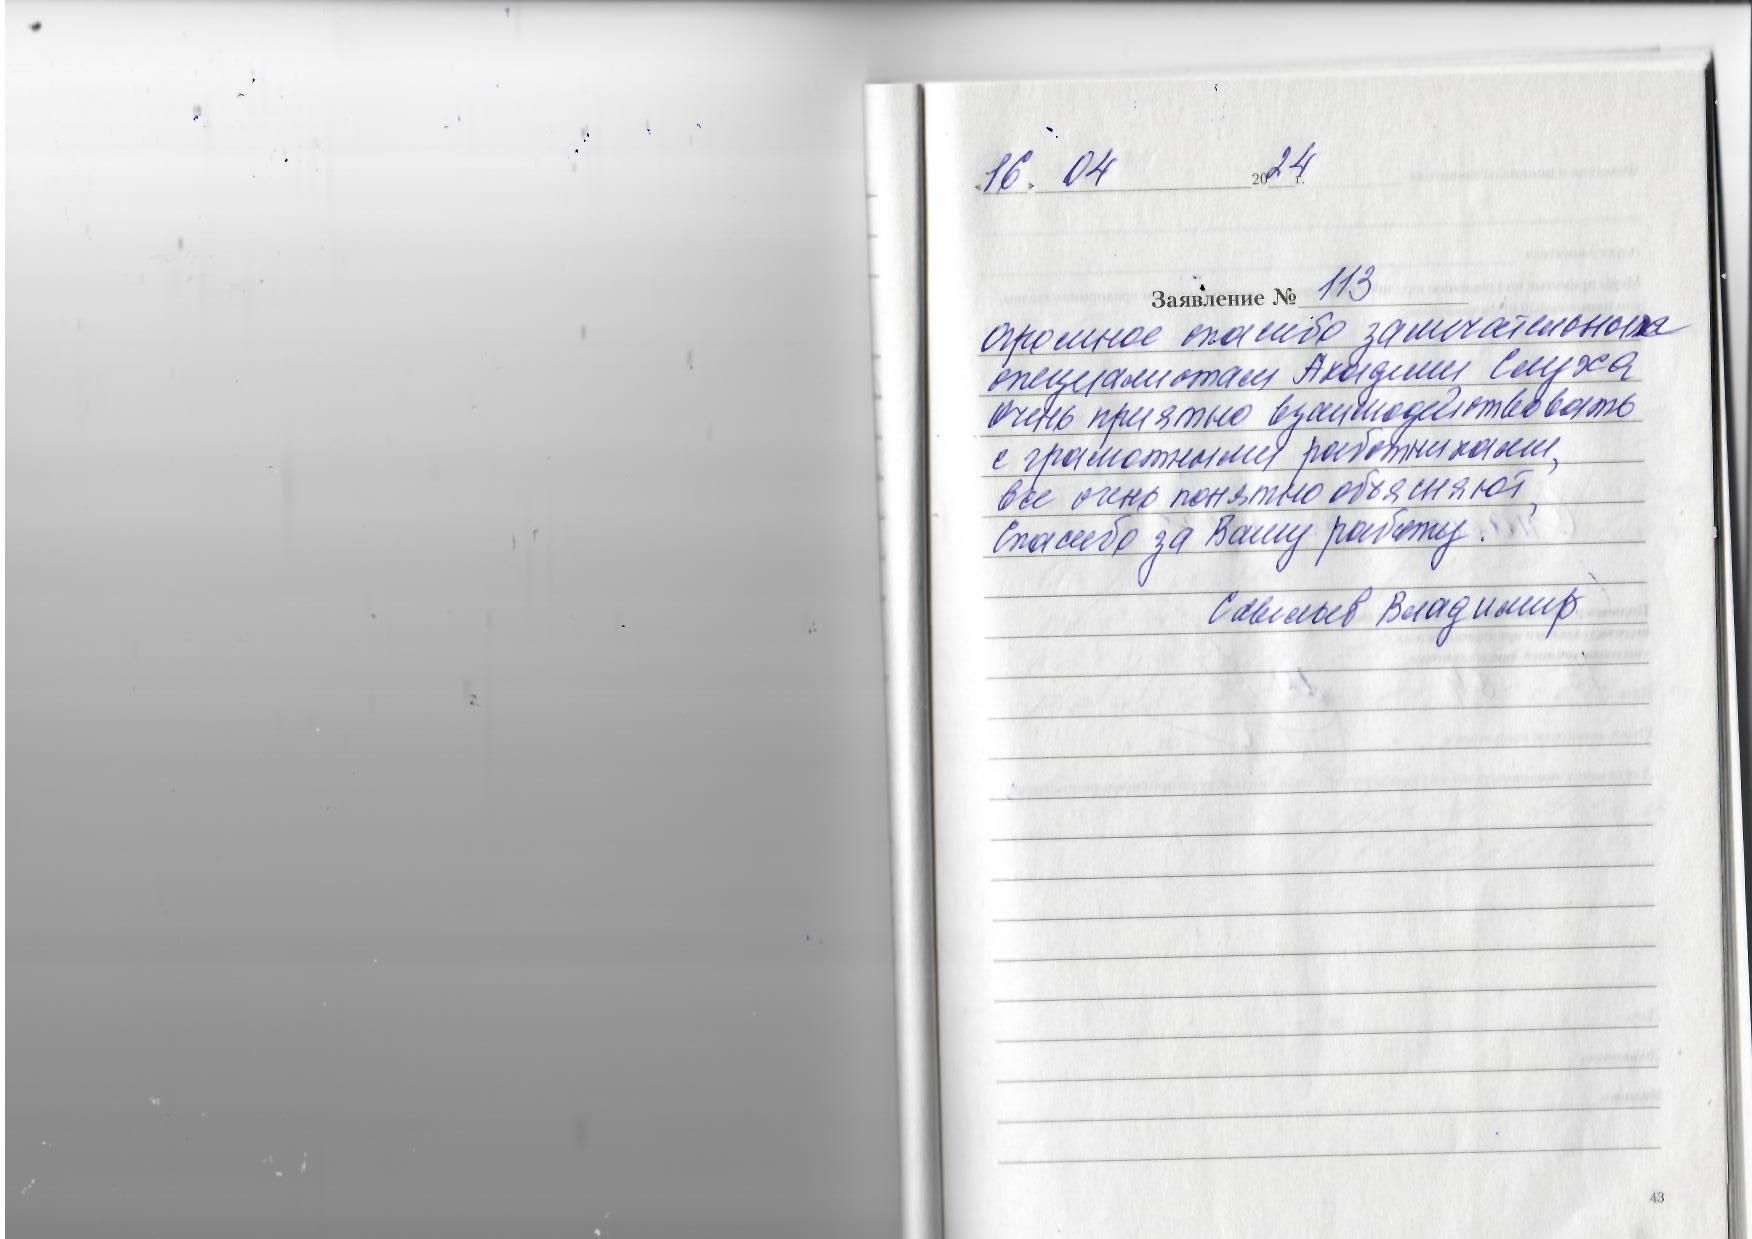 «16» 04 2024 г.
Заявление № 113
Огромное спасибо замечательным
специалистам Академии Слуха
Очень приятно взаимодействовать
с грамотными работниками,
все очень понятно объясняют,
Спасибо за Вашу работу.
Савельев Владимир
43